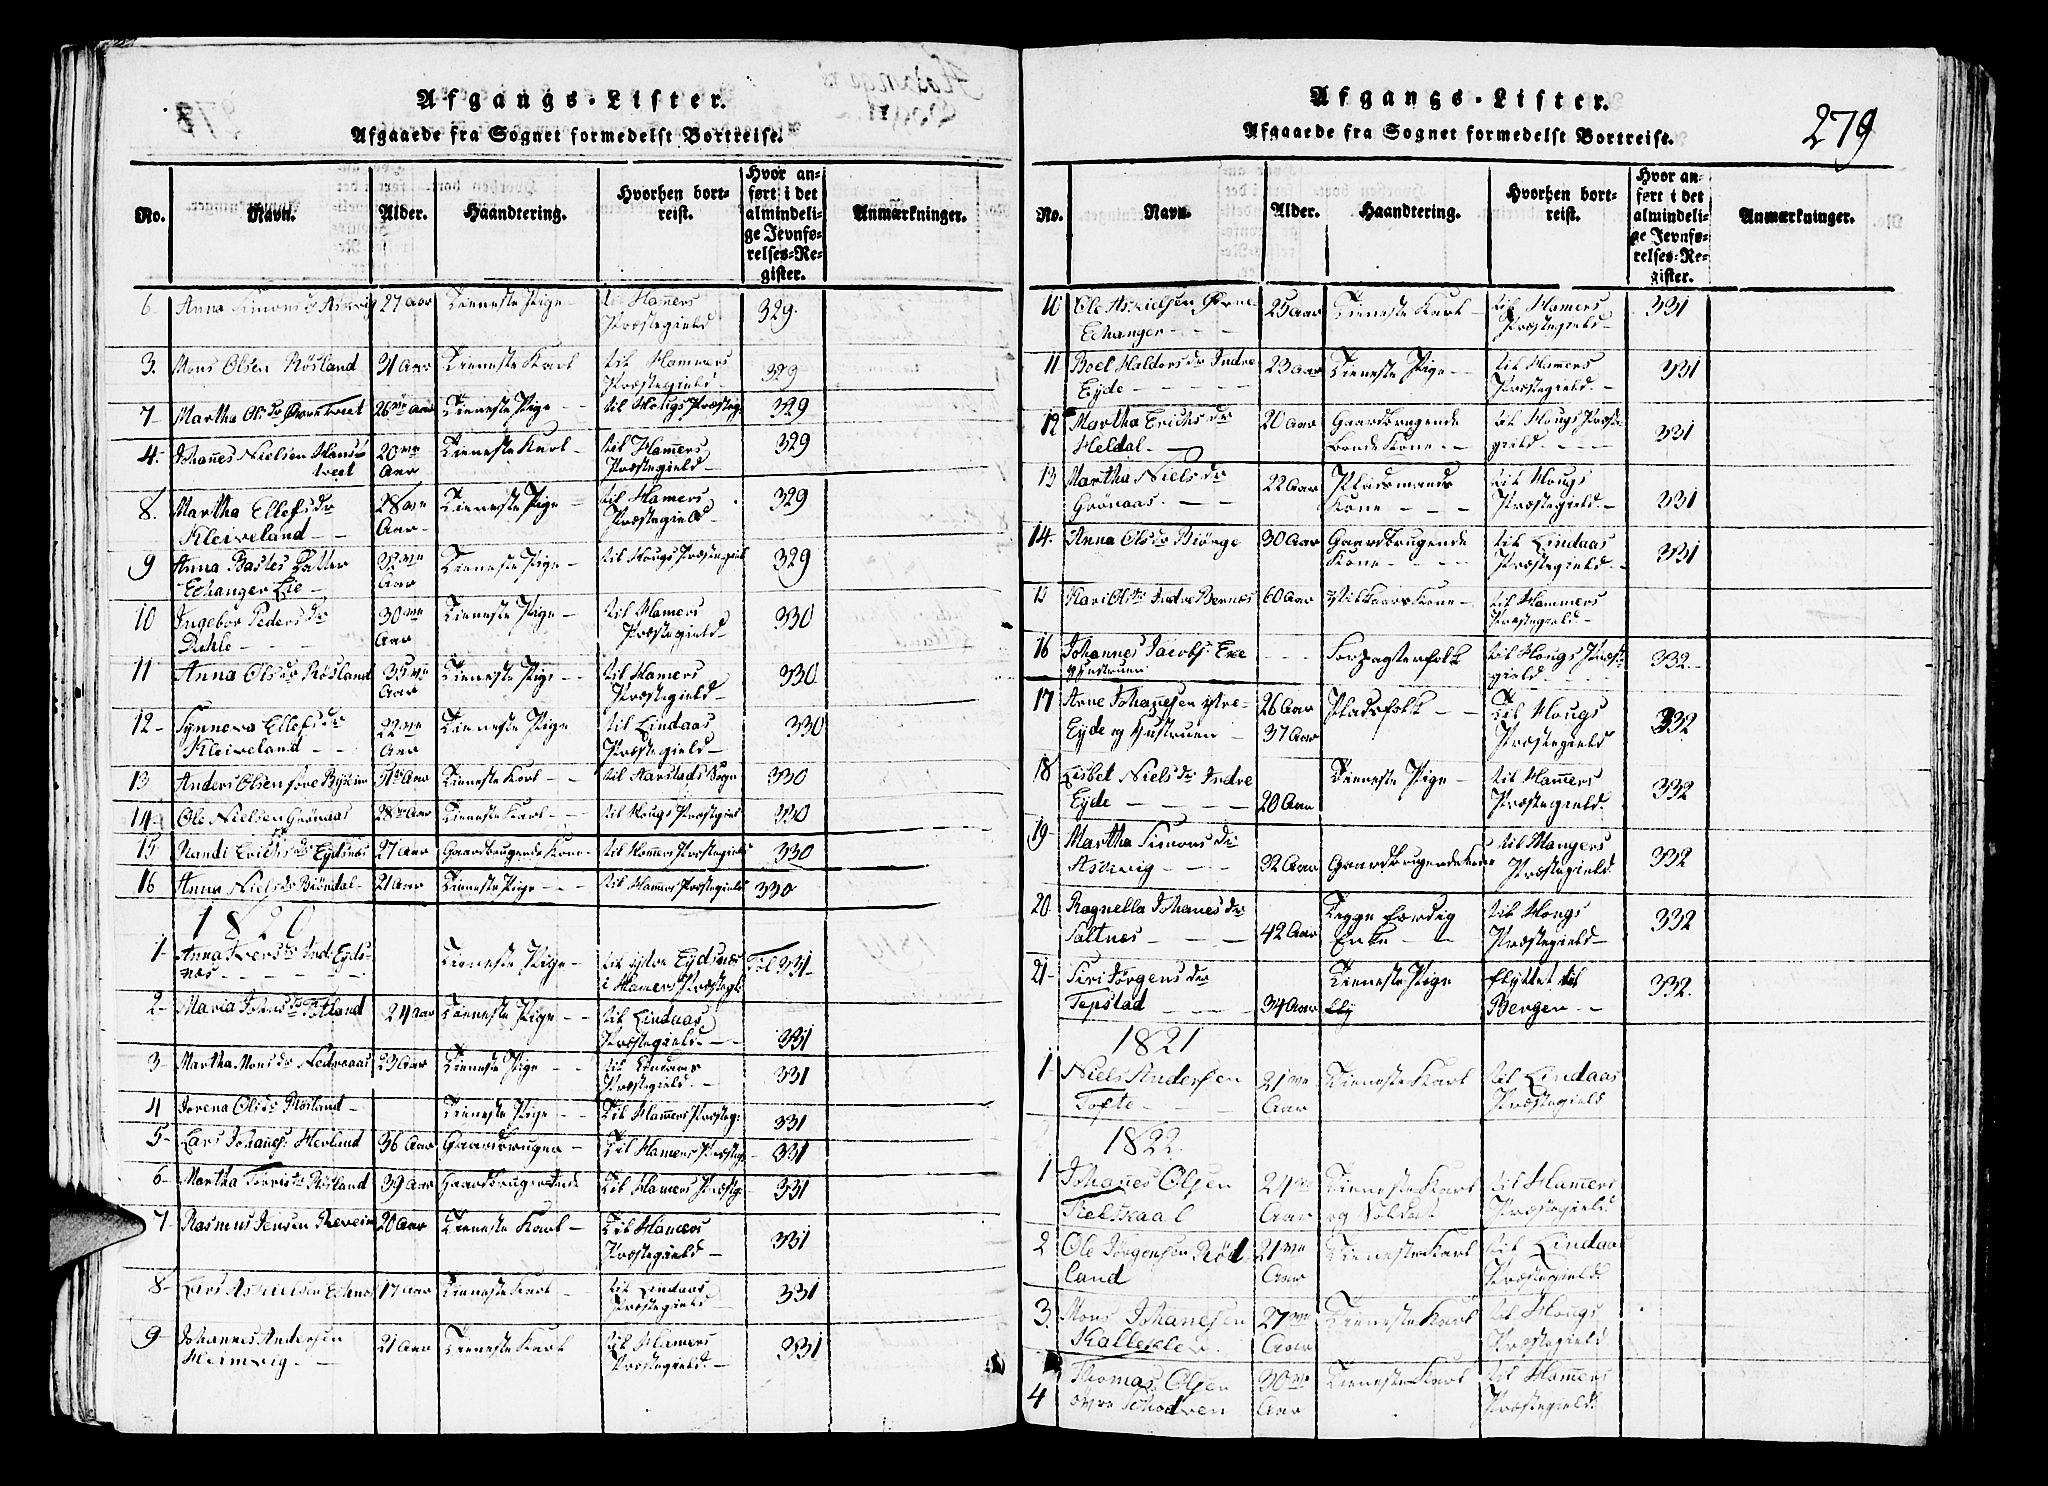 Afgangs-Lister.
Afgaaede fra Sognet formedelst Bortreise.
No. Navn. Alder. Haandtering. Hvorhen bortreist. Hvor anført i det almindelige Jevnførelses-Register. Anmærkninger.
6 Anna Simonsdr Askvig 27 Aar Tieneste Pige til Hamers Præstegield 329.
3. Mons Olsen Røsland 31 Aar Tieneste Karl til Hammers Præstegield 329
7 Martha Olsdr 26 Aar Tieneste Pige til Hougs Præsteg: 329
4. Johanes Nielsen 20 Aar Tieneste Karl til Hamers Præstegield 329
8. Martha Ellefsdr Kleiveland 28 Aar Tieneste Pige til Hamers Præstegield 329
9 Anna Bastes Datter Echanger Eie Aar Tieneste Pige til Hougs Præstegield 329
10 Ingebor Pedersdr Duhle 30 Aar Tieneste Pige til Hamers Præstegield 330
11 Anna Olsdr Røsland 35 Aar Tieneste Pige til Hamers Præstegield 330
12 Synneva Ellefsdr Kleiveland 22 Aar Tieneste Pige til Lindaas Præstegield 330
13 Anders Olsen Aar Tieneste Karl til Sogn 330
14 Ole Nielsen Grønaas 28 Aar Tieneste Karl til Hougs Præstegield 330
15 Randi Erichsdr Eydsnæs 27 Aar Gaardbrugende Kone til Hamers Præstegield 330
16 Anna Nielsdr Biøndal 21 Aar Tieneste Pige til Hamers Præstegield 330
1820
1 Anna Iversdr Ind: Eydsnæs Tieneste Pige til ystre Eydsnæs i Hamers Præstegl: Fol 331
2 Maria Johnsdr 24 Aar Tieneste Pige til Lindaas Præstegield 331
3 Martha Monsdr Nedreaas 23 Aar Tieneste Pige til Lindaas Præstegield 331
4 Olsdr Røsland Tieneste Pige til Hamers Præsteg: 331
5 Lars Johanes: Herland 36 Aar Gaardbruger til Hamers Præsteg 331
6 Martha Røsland 39 Aar til Hamers Præsteg 331
7 Rasmus Jensen 20 Aar Tieneste Karl til Hamers Præstegield 331
8 Lars 17 Aar Tieneste Karl til Lindaas Præstegield 331
9 Johannes Andersen Heimvig 21 Aar Tieneste Karl til Hamers Præstegield 331
Afgangs-Lister.
279
Afgaaede fra Sognet formedelst Bortreise.
No. Navn. Alder. Haandtering. Hvorhen bortreist. Hvor anført i det almindelige Jevnførelses-Register. Anmærkninger.
10 Ole Echanger 25 Aar Tieneste Karl til Hamers Præstegield 331
11 Boel Haldorsdr Indre Eyde 23 Aar Tieneste Pige til Hamers Præstegield 331
12 Martha Erichsdr Heldal 20 Aar Gaardbrugende Bonde Kone til Hougs Præstegield 331
13 Martha Nielsdr Grønaas 22 Aar Pladsmands Kone til Hougs Præstegield 331
14. Anna Olsdr Biørge 30 Aar Gaardbrugende Kone til Lindaas Præstegield 331
15 Kari Olsdr Indre Bernæs 60 Aar Vilkaars Kone til Hammers Præstegield
16 Johannes Jacobs: Hustruen til Hougs Præstegield 332
17 Arne Johanesen ystre Eyde og Hustruen 26 Aar 37 Aar Pladsfolk til Hougs Præstegield 332
18 Lisbet Nielsdr Indre Eyde 20 Aar Tieneste Pige til Hamers Præstegield 332
19 Martha Simonsdr Askvig 32 Aar Gaardbrugende Kone til Mangers Præstegield 332
20 Ragnella Johanesdr Saltnes 42 Aar Enke til Hougs Præstegield 332
21 Siri Jørgensdr Tepstad 34 Aar Tieneste Pige flyttet til Bergen 332.
1821
1 Niels Andersen Tofte 21 Aar Tieneste Karl til Lindaas Præstegield
1822.
1 Johanes Olsen 24 Aar Tieneste Karl og Soldat til Hamers Præstegield
2 Ole Jørgensen Rødland 21 Aar Tieneste Karl til Lindaas Præstegield
3 Mons Johanesen 27 Aar Tieneste Karl til Hougs Præstegield
4 Thomas Olsen 30 Aar Tieneste Karl til Hamers Præstegield